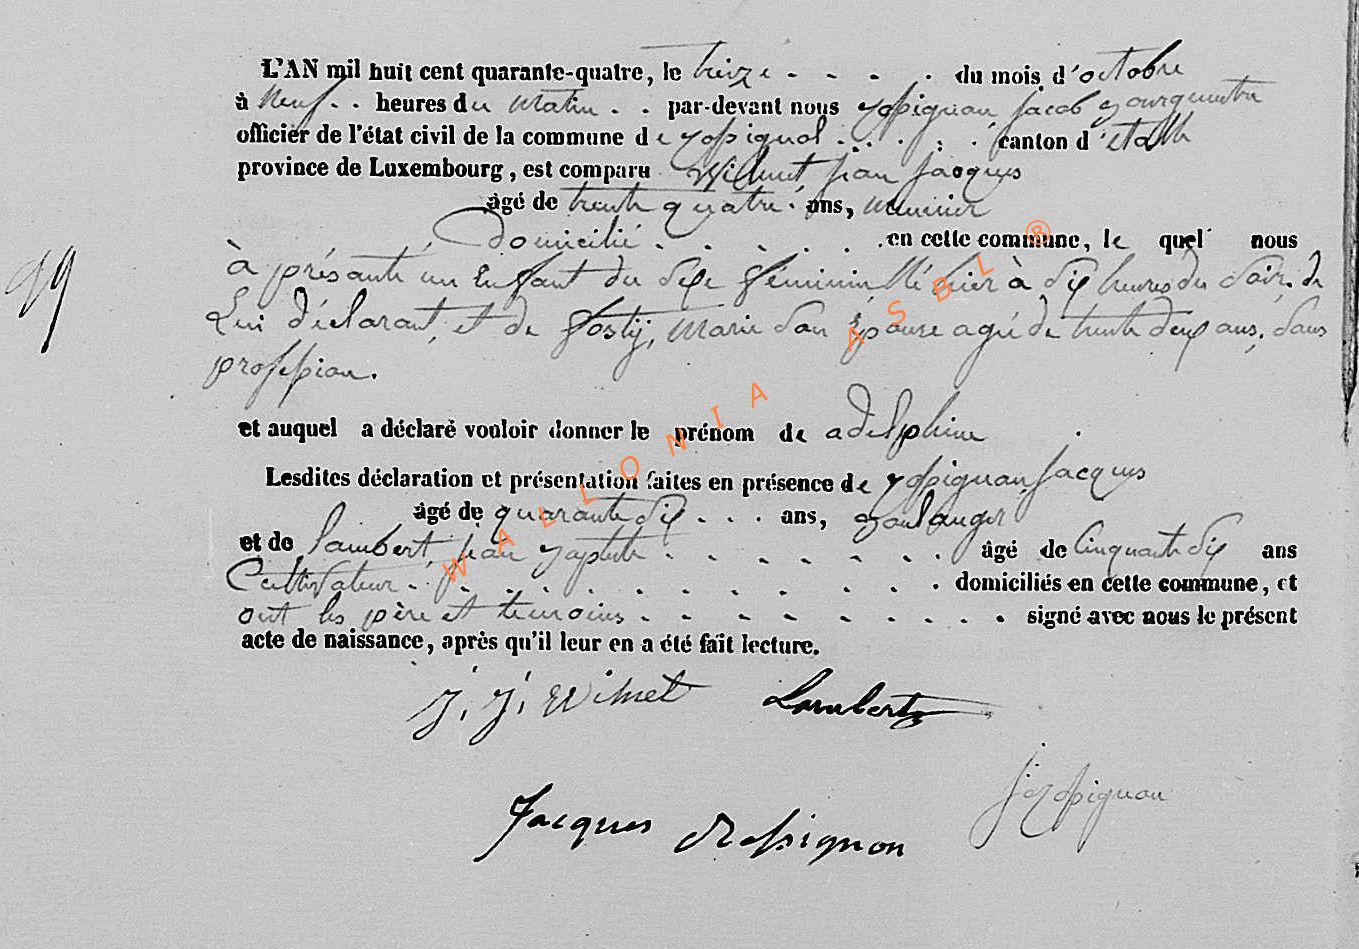 L'AN mil huit cent quarante-quatre, le treize du mois d'octobre
à Neuf heures du Matin par-devant nous Rossignon Jacob Bourguemetre
officier de l'état civil de la commune de Rossignol canton d'étalle
province de Luxembourg, est comparu Wilmet jean jacques
âgé de trente quatre ans, meunier
Domicilié en cette commune, le quel nous
99
à présanté un Enfant du Sexe féminin Né hier à dix heures du Soir, de
Lui Déclarant, et de Marie Son Epouse agée de trente deux ans, Sans
proffession.
et auquel a déclaré vouloir donner le prénom de adelphine
Lesdites déclaration et présentation faites en présence de Rossignon Jacques
âgé de quarante dix ans, Boulanger
et de Lambert jean Baptiste âgé de Cinquante dix ans
Cultivateur domiciliés en cette commune, et
ont les père et temoins signé avec nous le présent
acte de naissance, après qu'il leur en a été fait lecture.
J. J. Wilmet Lambert
J Rossignon
Jacques Rossignon
WALLONIA ASBL ®